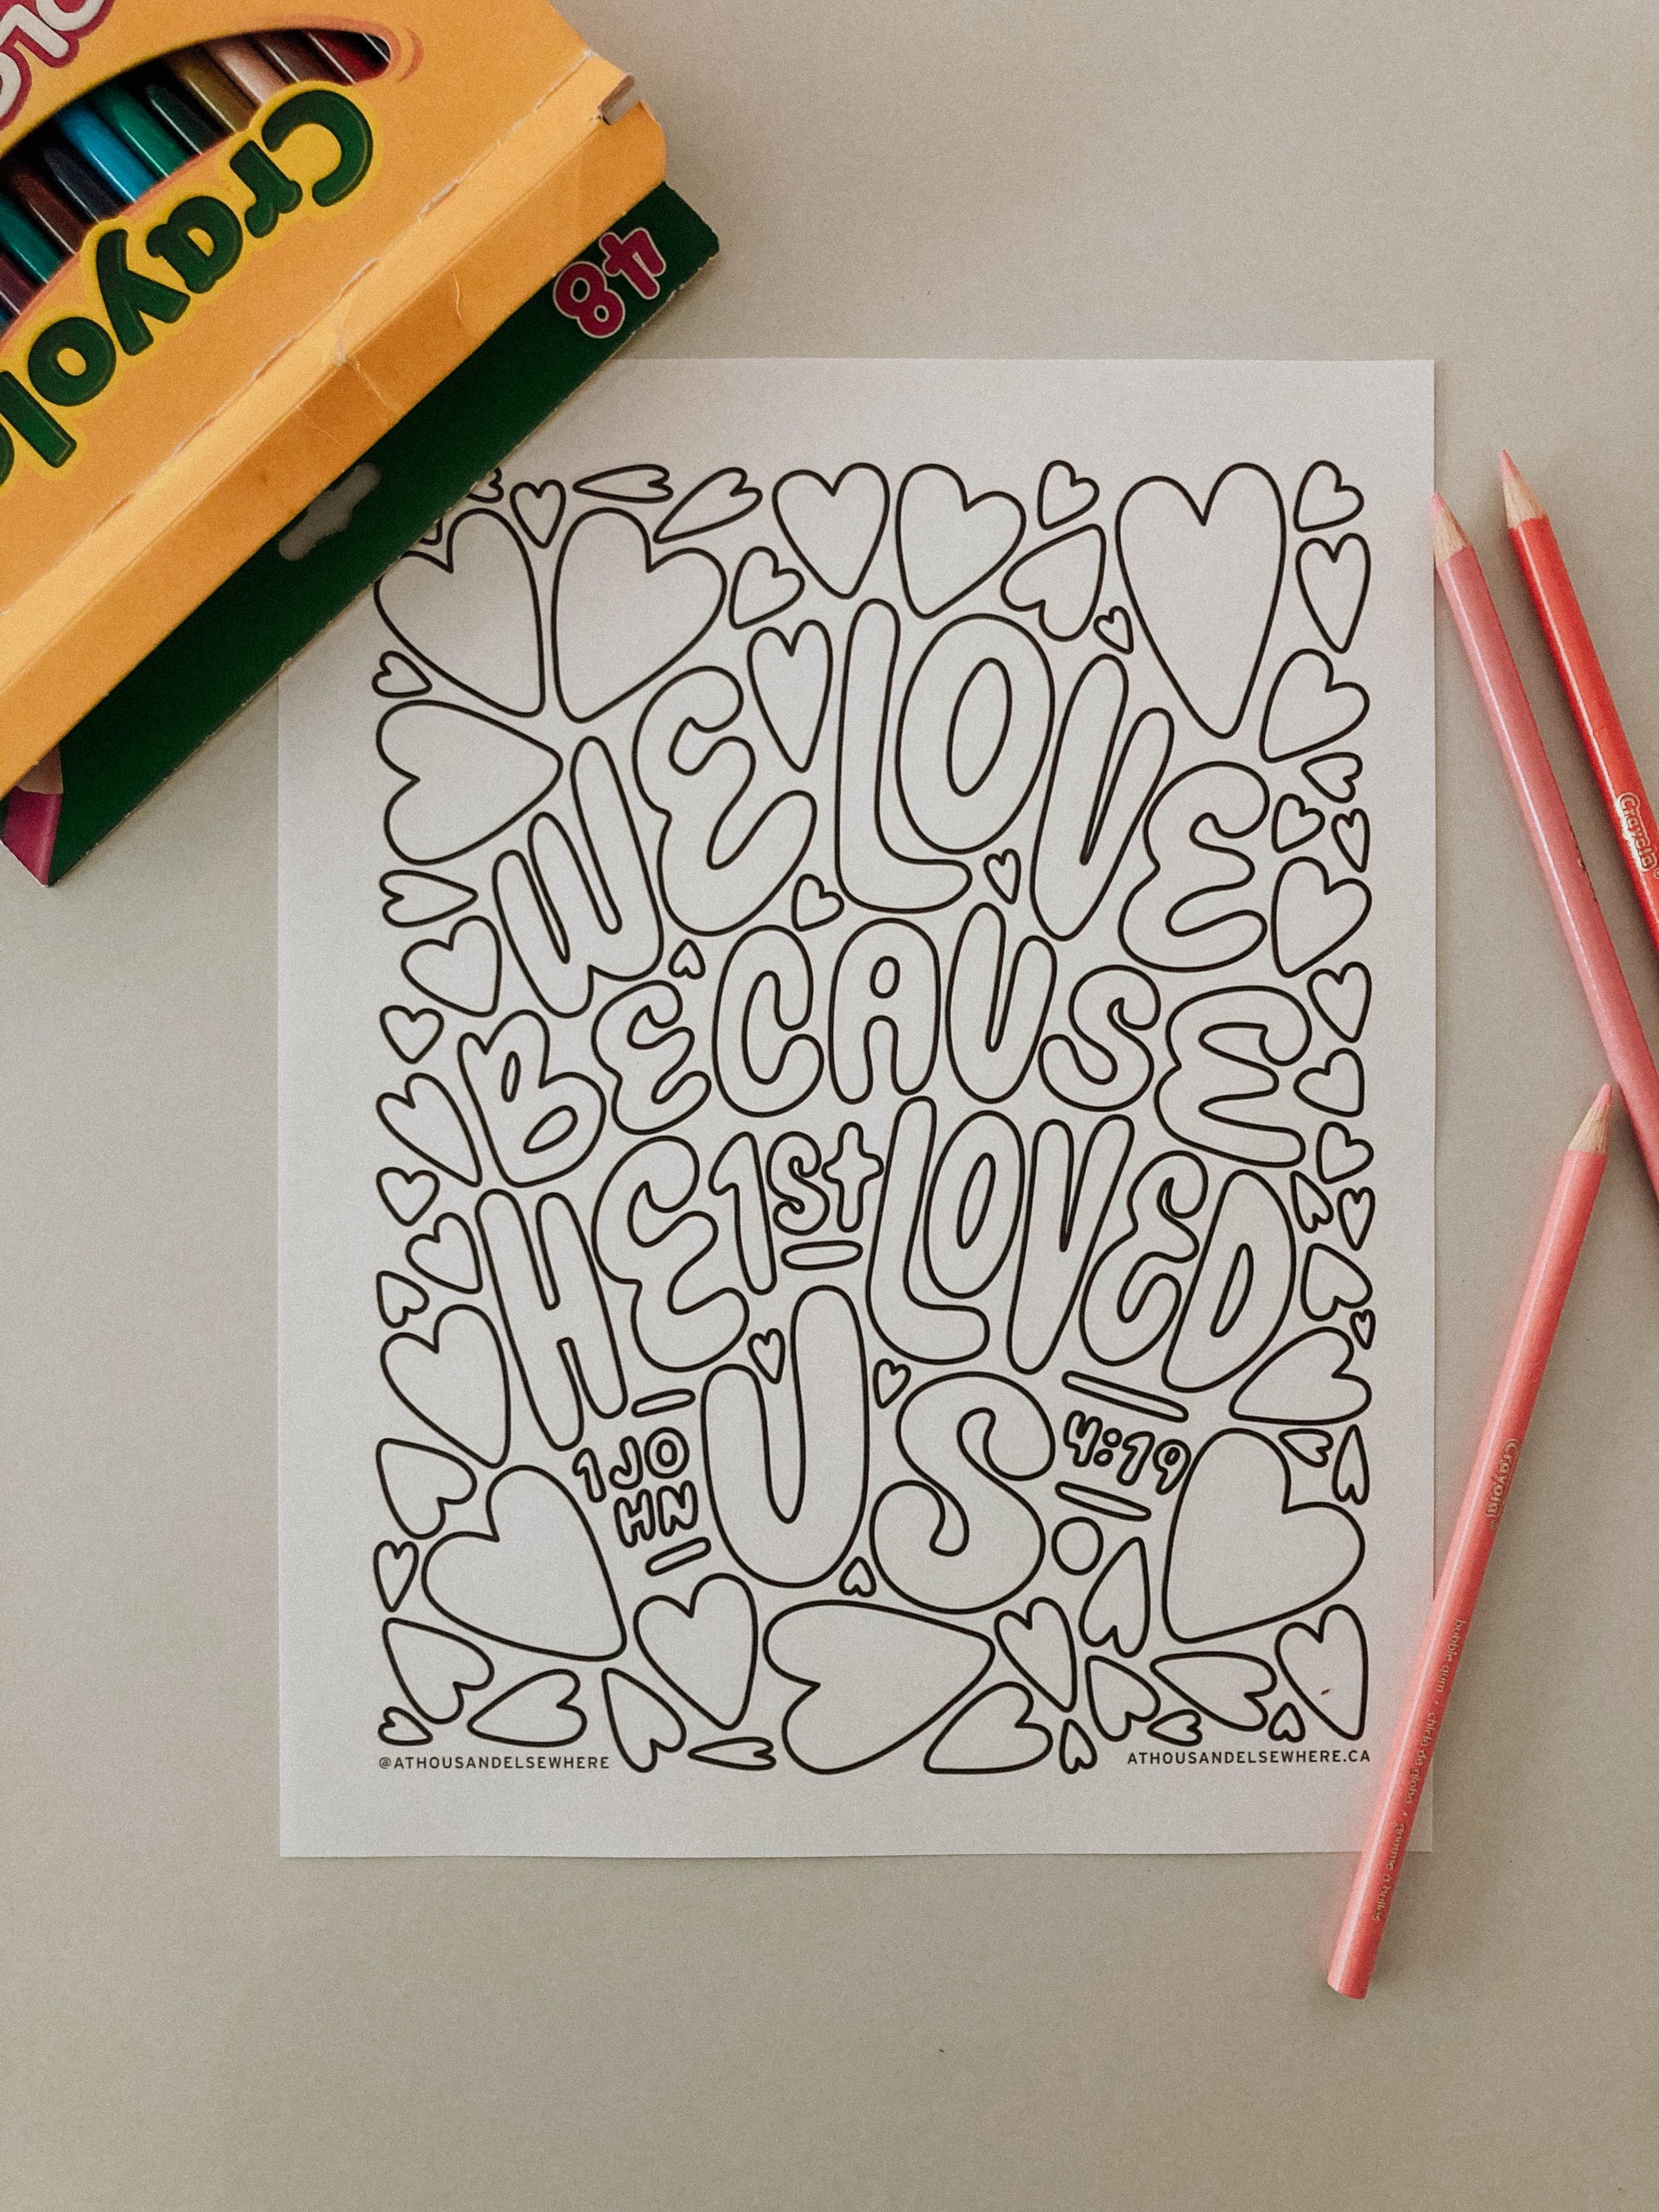 Crayola
48
WE LOVE
BECAUSE
HE 1st LOVED
US.
1 JO
HN
4:19
@ATHOUSANDELSEWHERE
ATHOUSANDELSEWHERE.CA
Crayola
Crayola
bubble gum • chicle de globo • gomme à bulles